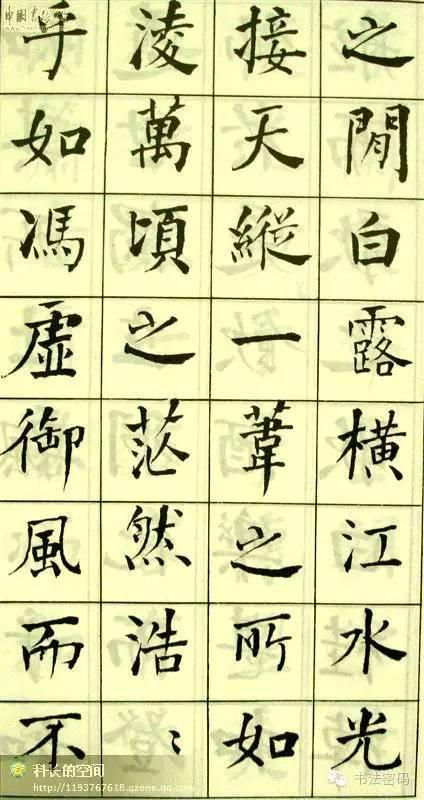 之閒白露橫江水光
接天縱一葦之所如
淩萬頃之茫然浩〻
乎如馮虛御風而不
科长的空间
http://1193767618.qzone.qq.com
书法密码